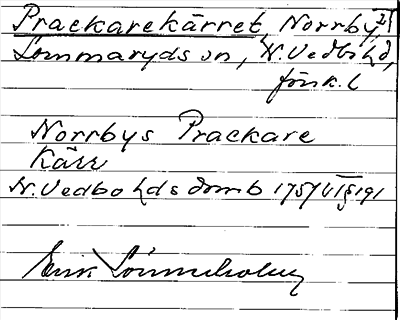 Prackarekärret, Norrby 2/1
Lommaryds sn, N. Vedbo hd,
Jönk. l
Norrbys Prackare
Kärr
N. Vedbo hds domb 1757 VI § 191
Erik